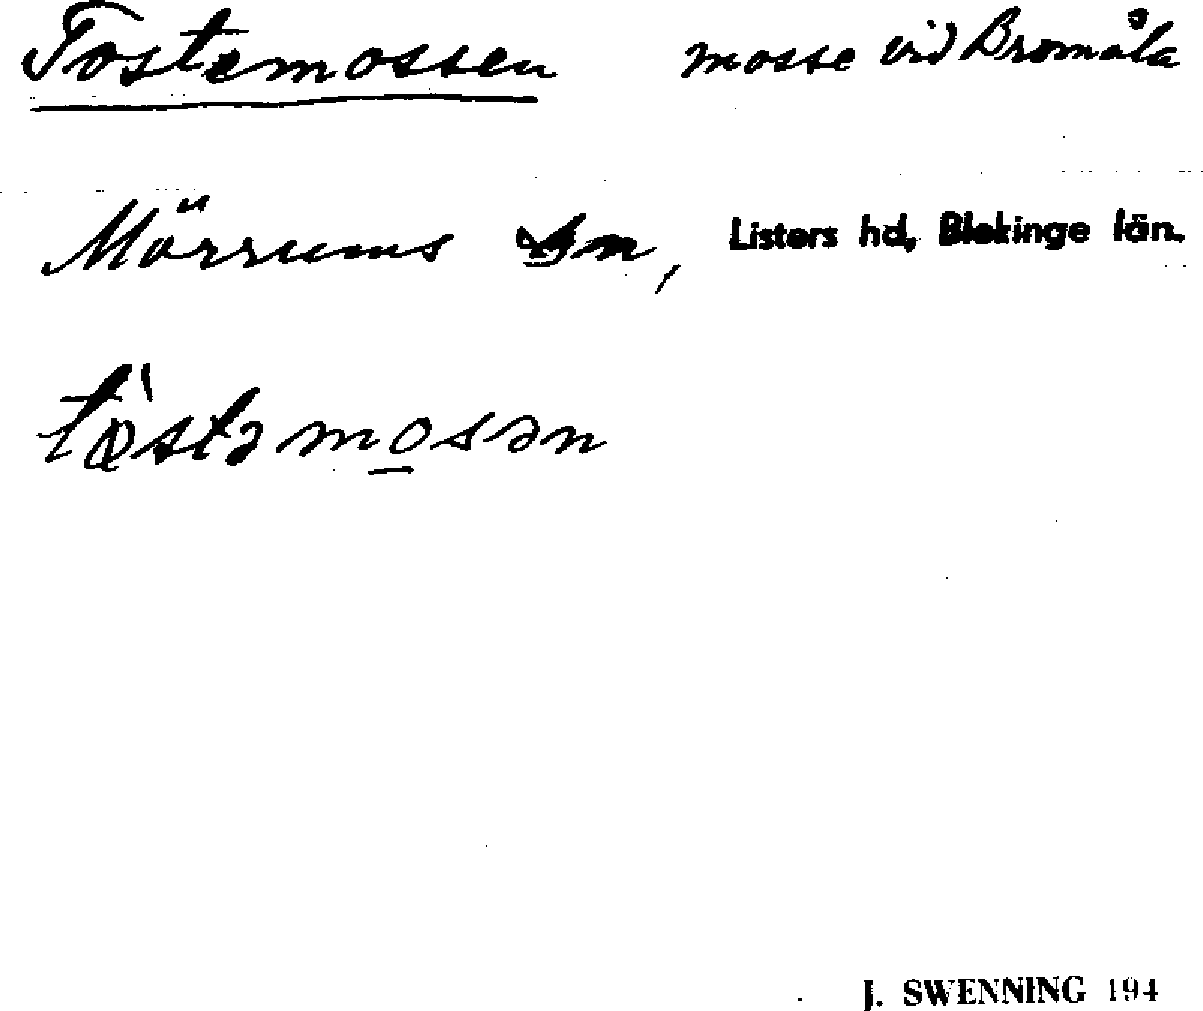 Tostemossen mosse vid Bromåla
Mörrums sn, Listers hd, Blekinge län.
tǫ̀stəmo̲sən
J. SWENNING 194